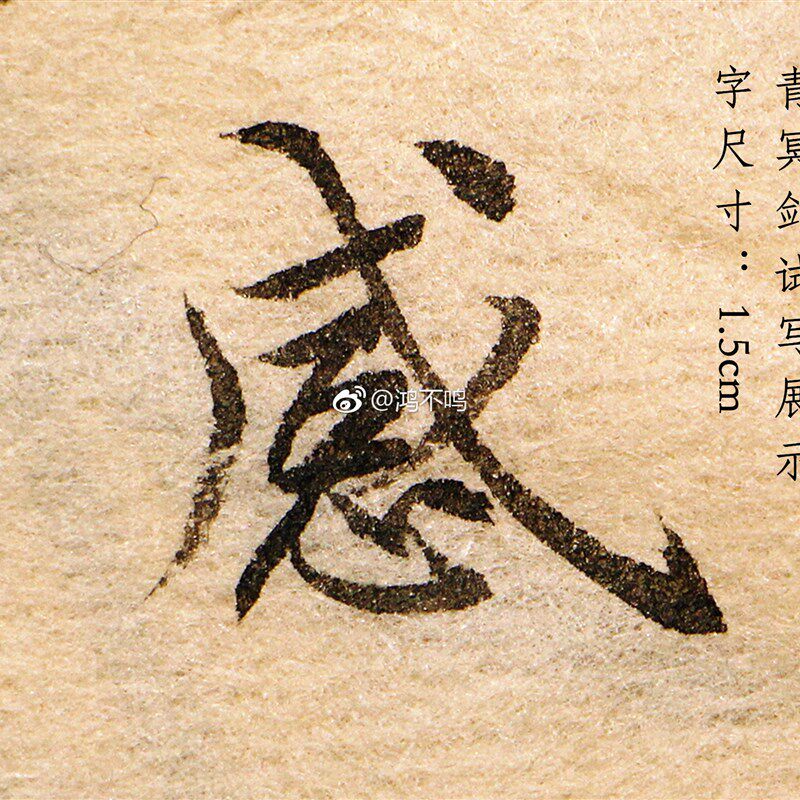 青冥剑试写展示
字尺寸：1.5cm
感
@鸿不鸣